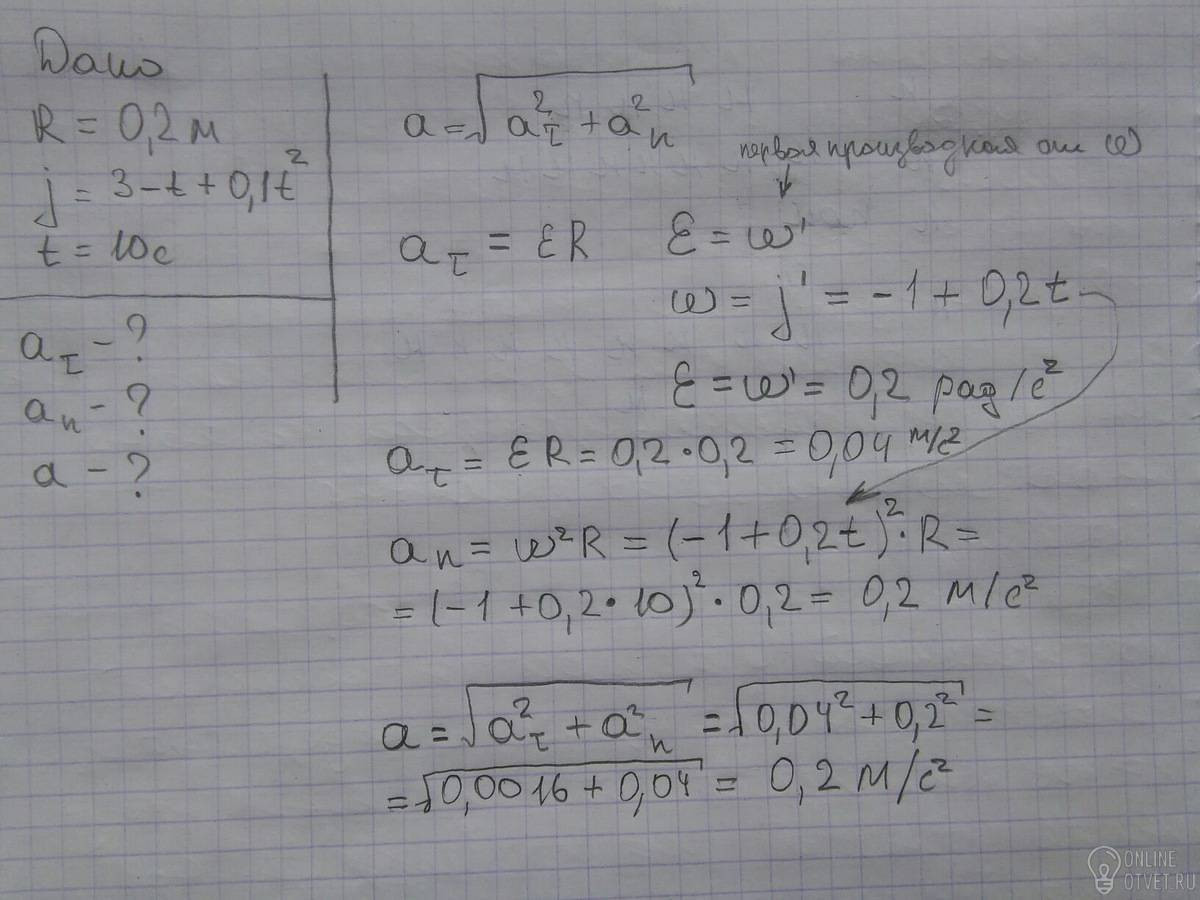 Дано
R = 0,2 м
j = 3 - t + 0,1t²
t = 10с
a_τ - ?
a_n - ?
a - ?
a = √(a_τ² + a_n²)
первая производная от ω
↓
a_τ = εR  ε = ω'
ω = j' = -1 + 0,2t
ε = ω' = 0,2 рад/с²
a_τ = εR = 0,2 · 0,2 = 0,04 м/с²
a_n = ω²R = (-1 + 0,2t)² · R =
= (-1 + 0,2 · 10)² · 0,2 = 0,2 м/с²
a = √(a_τ² + a_n²) = √(0,04² + 0,2²) =
= √(0,0016 + 0,04) = 0,2 м/с²
ONLINE
OTVET.RU